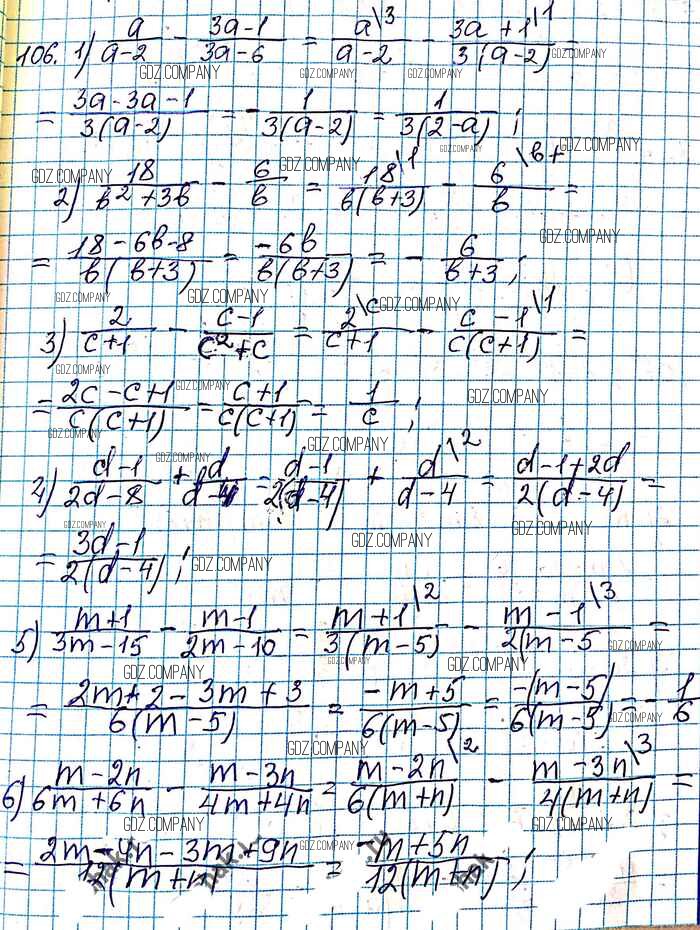 106. 1) a/(a-2) - (3a-1)/(3a-6) = a\3/(a-2) - (3a+1\1)/(3(a-2)) =
= (3a-3a-1)/(3(a-2)) = -1/(3(a-2)) = 1/(3(2-a));
2) 18/(b²+3b) - 6/b = 18\1/(b(b+3)) - 6\b+/b =
= (18-6b-8)/(b(b+3)) = -6b/(b(b+3)) = -6/(b+3);
3) 2/(c+1) - (c-1)/(c²+c) = 2\c/(c+1) - (c-1\1)/(c(c+1)) =
= (2c-c+1)/(c(c+1)) = (c+1)/(c(c+1)) = 1/c;
4) (d-1)/(2d-8) + d/(d-4) = (d-1)/(2(d-4)) + d\2/(d-4) = (d-1+2d)/(2(d-4)) =
= (3d-1)/(2(d-4));
5) (m+1)/(3m-15) - (m-1)/(2m-10) = (m+1\2)/(3(m-5)) - (m-1\3)/(2(m-5) =
= (2m+2-3m+3)/(6(m-5)) = (-m+5)/(6(m-5)) = -(m-5)/(6(m-5)) = -1/6
6) (m-2n)/(6m+6n) - (m-3n)/(4m+4n) = (m-2n\2)/(6(m+n)) - (m-3n\3)/(4(m+n)) =
= (2m-4n-3m+9n)/(12(m+n)) = (-m+5n)/(12(m+n));
GDZ.COMPANY